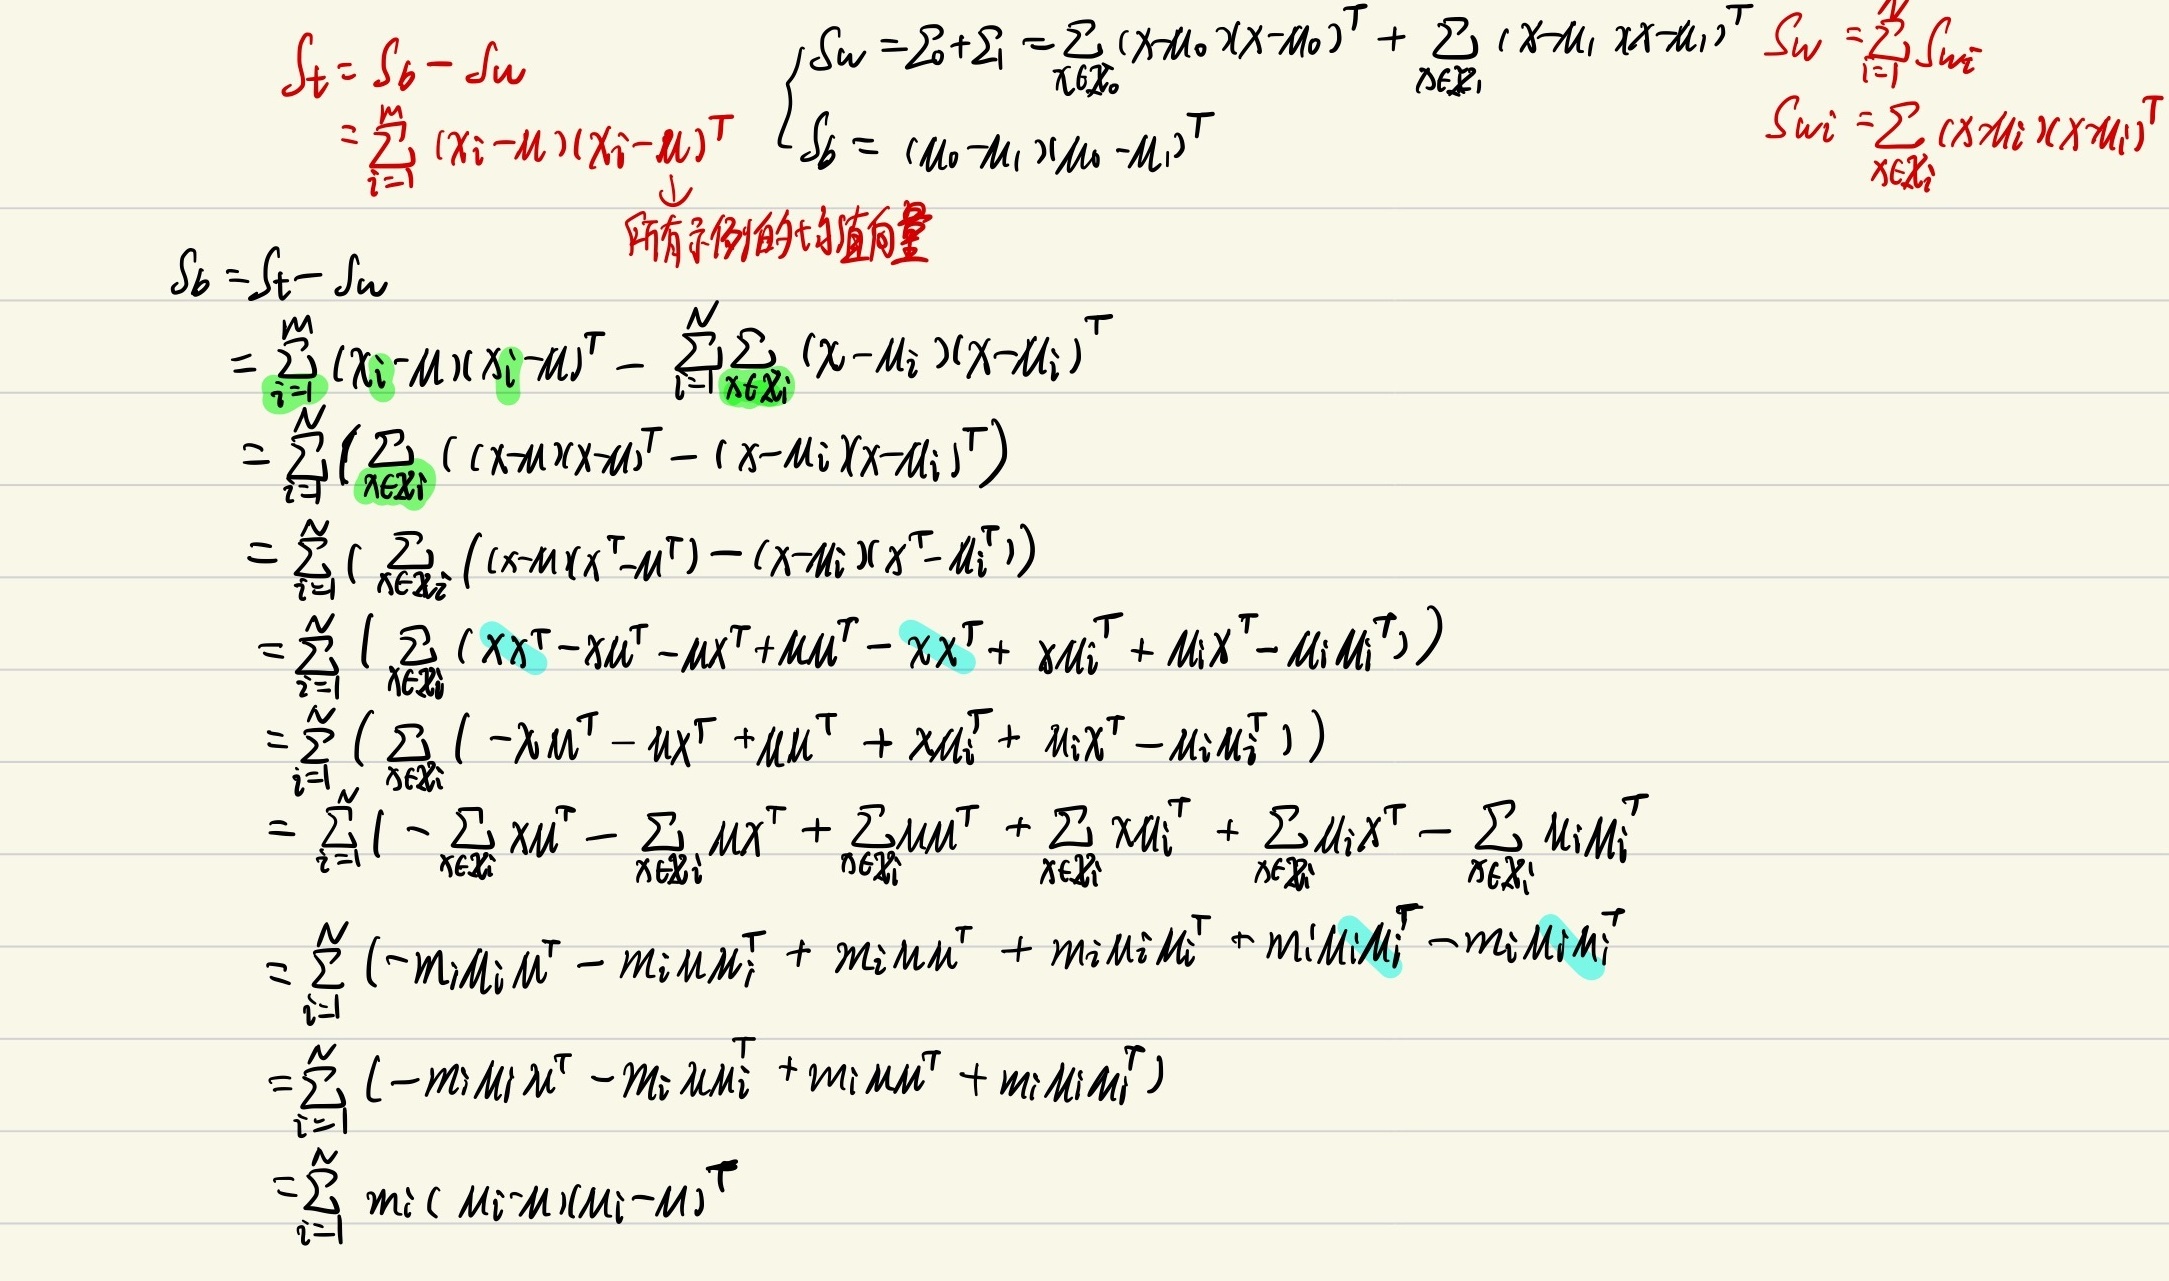 St = Sb − Sw
= Σ_{i=1}^{m} (xi − μ)(xi − μ)^T
↓
所有示例的均值向量
Sw = Σ0 + Σ1 = Σ_{x∈X0} (x−μ0)(x−μ0)^T + Σ_{x∈X1} (x−μ1)(x−μ1)^T
Sb = (μ0−μ1)(μ0−μ1)^T
Sw = Σ_{i=1}^{N} Swi
Swi = Σ_{x∈Xi} (x−μi)(x−μi)^T
Sb = St − Sw
= Σ_{i=1}^{m} (xi−μ)(xi−μ)^T − Σ_{i=1}^{N} Σ_{x∈Xi} (x−μi)(x−μi)^T
= Σ_{i=1}^{N} ( Σ_{x∈Xi} ( (x−μ)(x−μ)^T − (x−μi)(x−μi)^T )
= Σ_{i=1}^{N} ( Σ_{x∈Xi} ( (x−μ)(x^T−μ^T) − (x−μi)(x^T−μi^T) ) )
= Σ_{i=1}^{N} ( Σ_{x∈Xi} ( xx^T − xμ^T − μx^T + μμ^T − xx^T + xμi^T + μix^T − μiμi^T ) )
= Σ_{i=1}^{N} ( Σ_{x∈Xi} ( −xμ^T − μx^T + μμ^T + xμi^T + μix^T − μiμi^T ) )
= Σ_{i=1}^{N} ( − Σ_{x∈Xi} xμ^T − Σ_{x∈Xi} μx^T + Σ_{x∈Xi} μμ^T + Σ_{x∈Xi} xμi^T + Σ_{x∈Xi} μix^T − Σ_{x∈Xi} μiμi^T
= Σ_{i=1}^{N} ( −miμiμ^T − miμμi^T + miμμ^T + miμiμi^T + miμiμi^T − miμiμi^T
= Σ_{i=1}^{N} ( −miμiμ^T − miμμi^T + miμμ^T + miμiμi^T )
= Σ_{i=1}^{N} mi(μi−μ)(μi−μ)^T